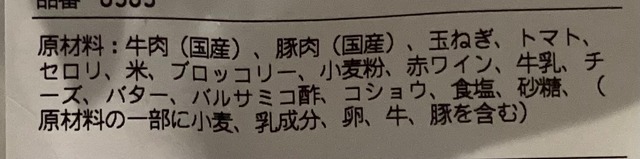 原材料：牛肉（国産）、豚肉（国産）、玉ねぎ、トマト、
セロリ、米、ブロッコリー、小麦粉、赤ワイン、牛乳、チ
ーズ、バター、バルサミコ酢、コショウ、食塩、砂糖、（
原材料の一部に小麦、乳成分、卵、牛、豚を含む）